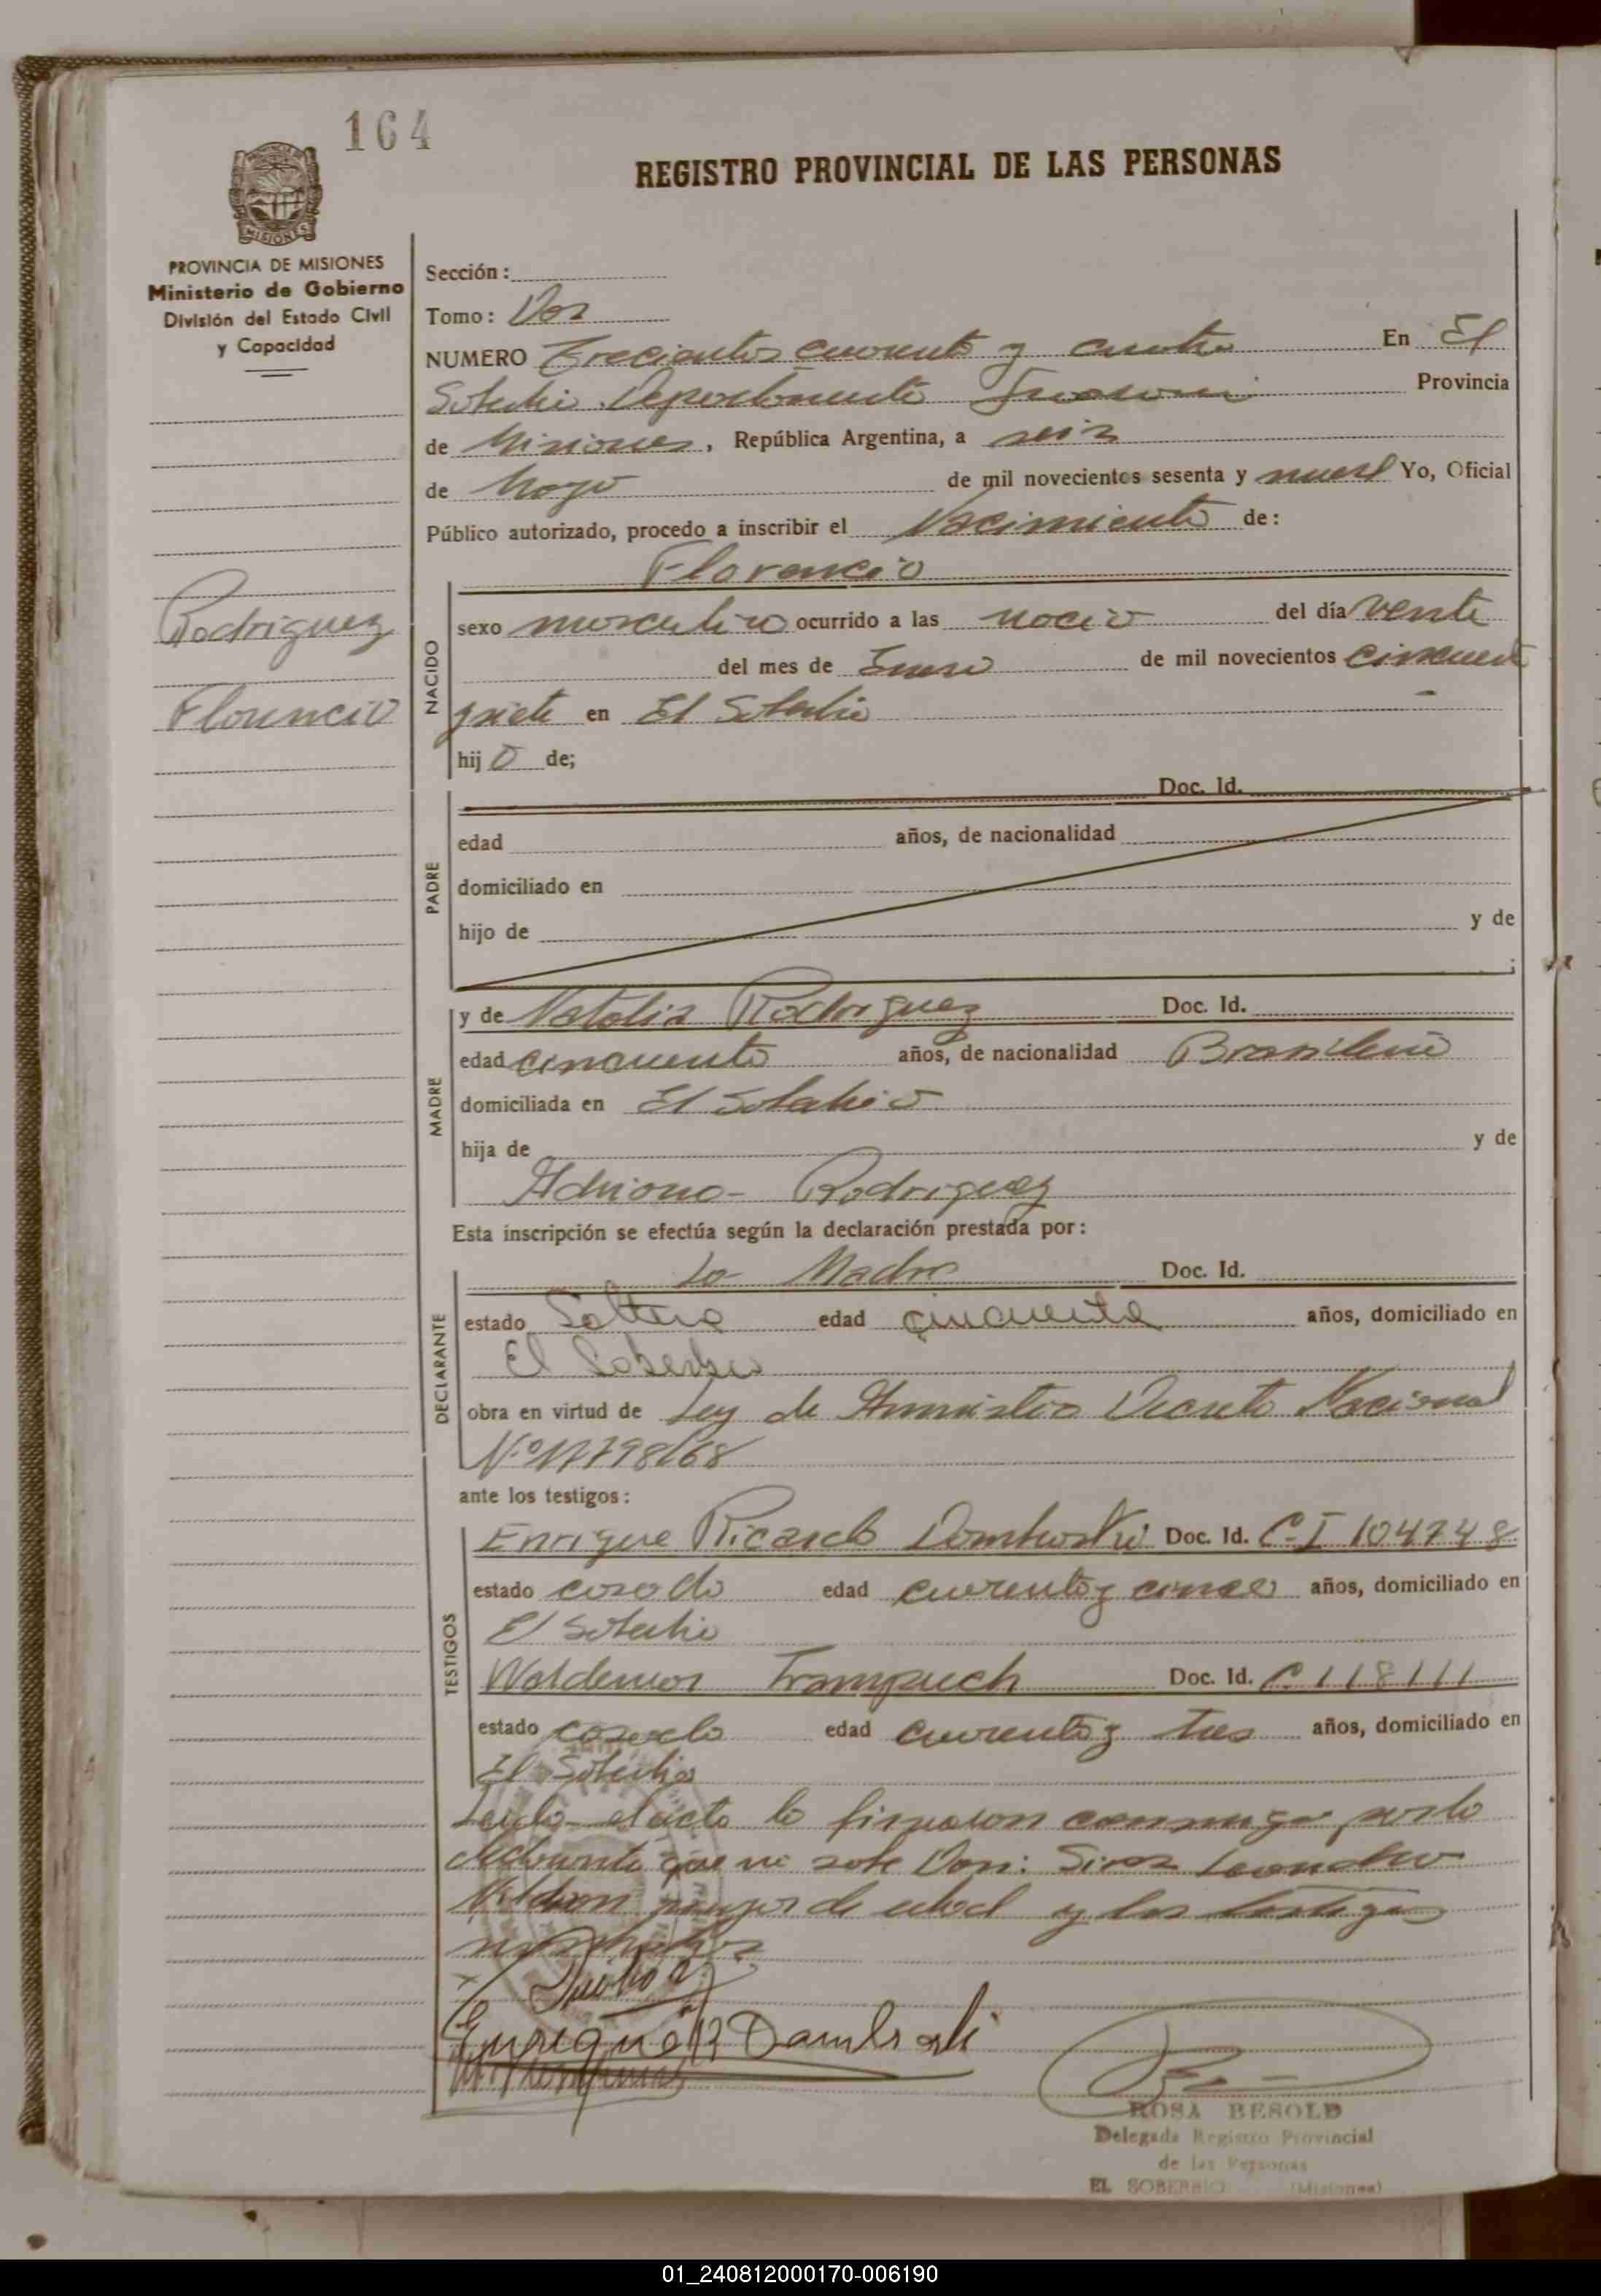 164
REGISTRO PROVINCIAL DE LAS PERSONAS
MISIONES
PROVINCIA DE MISIONES
Ministerio de Gobierno
División del Estado Civil
y Capacidad
Sección:
Tomo: Dos
NUMERO Trecientos cuarenta y cuatro En El
Soberbio Departamento Guarani Provincia
de Misiones, República Argentina, a seis
de Mayo de mil novecientos sesenta y nueve Yo, Oficial
Público autorizado, procedo a inscribir el Nacimiento de:
Florencio
Rodriguez
Florencio
NACIDO
sexo masculino ocurrido a las del día veinte
del mes de Enero de mil novecientos cincuent
y siete en El Soberbio
hij o de;
PADRE
Doc. Id.
edad años, de nacionalidad
domiciliado en
hijo de y de
MADRE
y de Natalia Rodriguez Doc. Id.
edad cincuenta años, de nacionalidad Brasileña
domiciliada en El Soberbio
hija de y de
Adriana Rodriguez
Esta inscripción se efectúa según la declaración prestada por:
DECLARANTE
La Madre Doc. Id.
estado Soltera edad cincuenta años, domiciliado en
El Soberbio
obra en virtud de Ley de Amnistia Decreto Nacional
Nº 17798/68
ante los testigos:
TESTIGOS
Enrique Ricardo Dombroski Doc. Id. C.I 104748
estado casado edad cuarenta y cinco años, domiciliado en
El Soberbio
Waldemar Trampuch Doc. Id. C.118111
estado casado edad cuarenta y tres años, domiciliado en
El Soberbio
Leida el acta la firmaron conmigo por la
declarante que no sabe Don: Leandro
mayor de edad y los testigos
Enrique R Dambroski
ROSA BESOLD
Delegada Registro Provincial
de las Personas
EL SOBERBIO (Misiones)
01_240812000170-006190